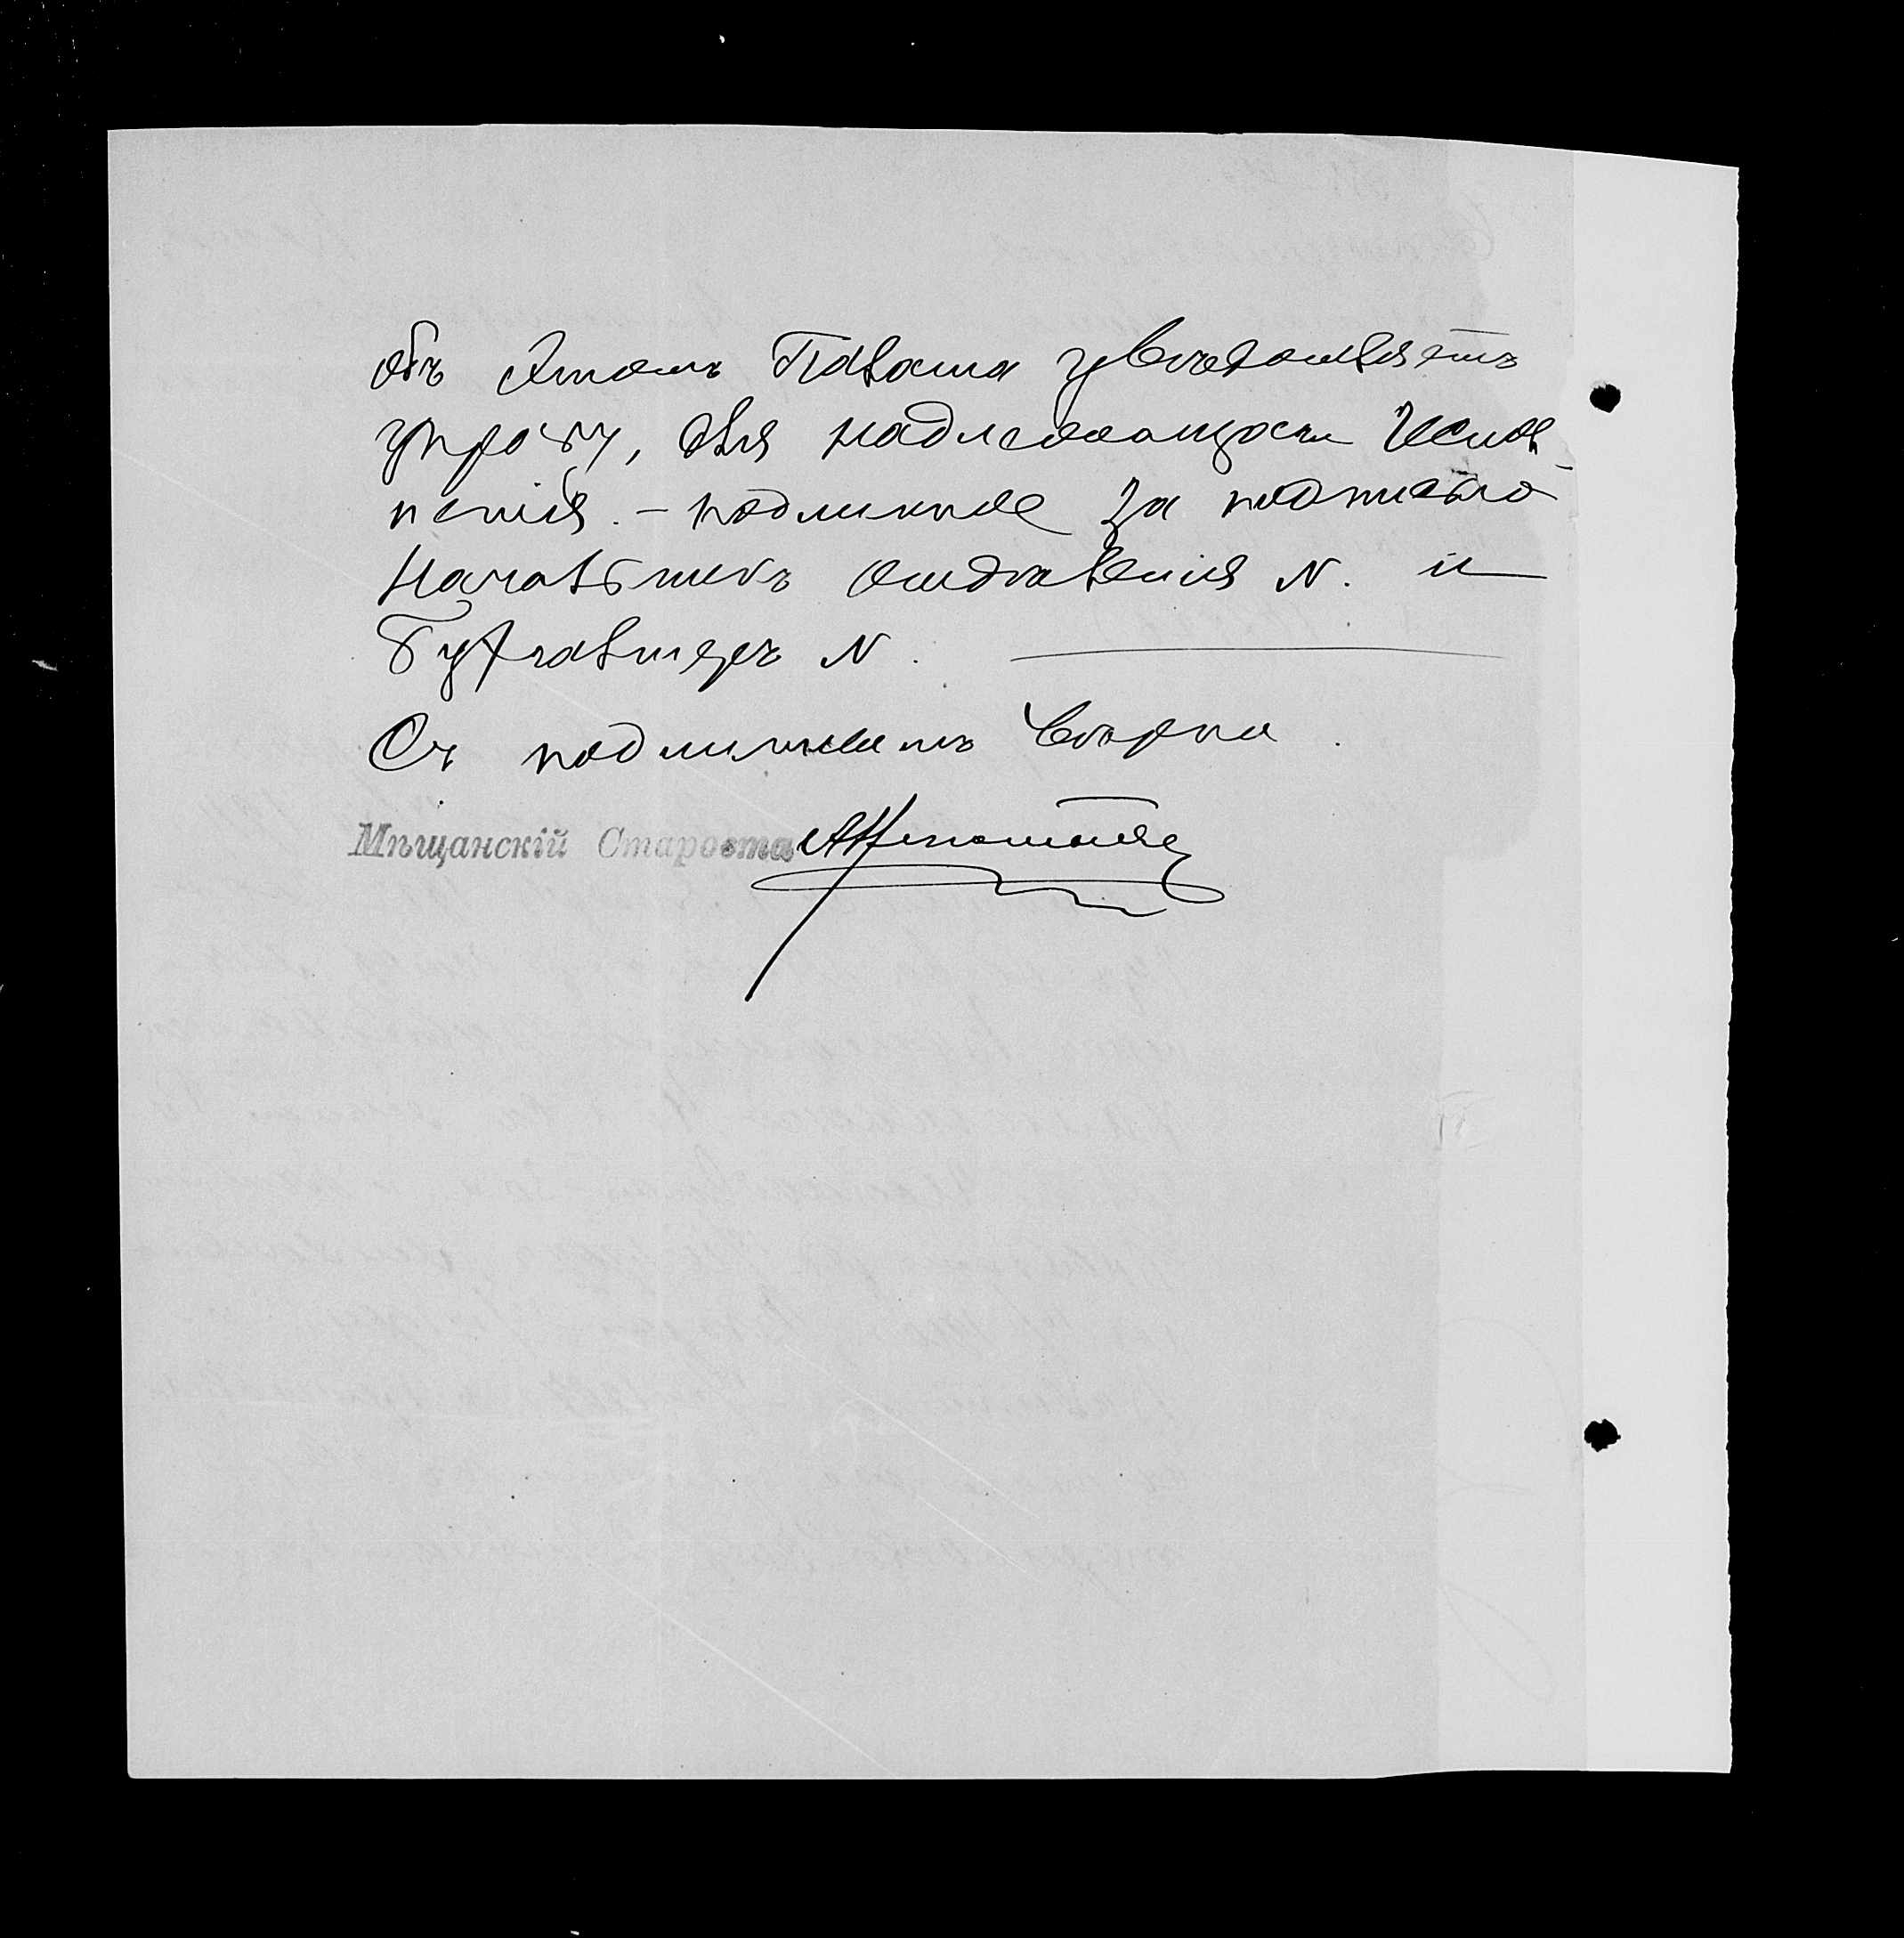 объ этомъ Палата увѣдомляетъ
управу, для надлежащаго испол-
ненія. - подлинное за подписью
Начальникъ отдѣленія N. и
Бухгалтеръ N.
Съ подлиннымъ вѣрно.
Мѣщанскій Староста